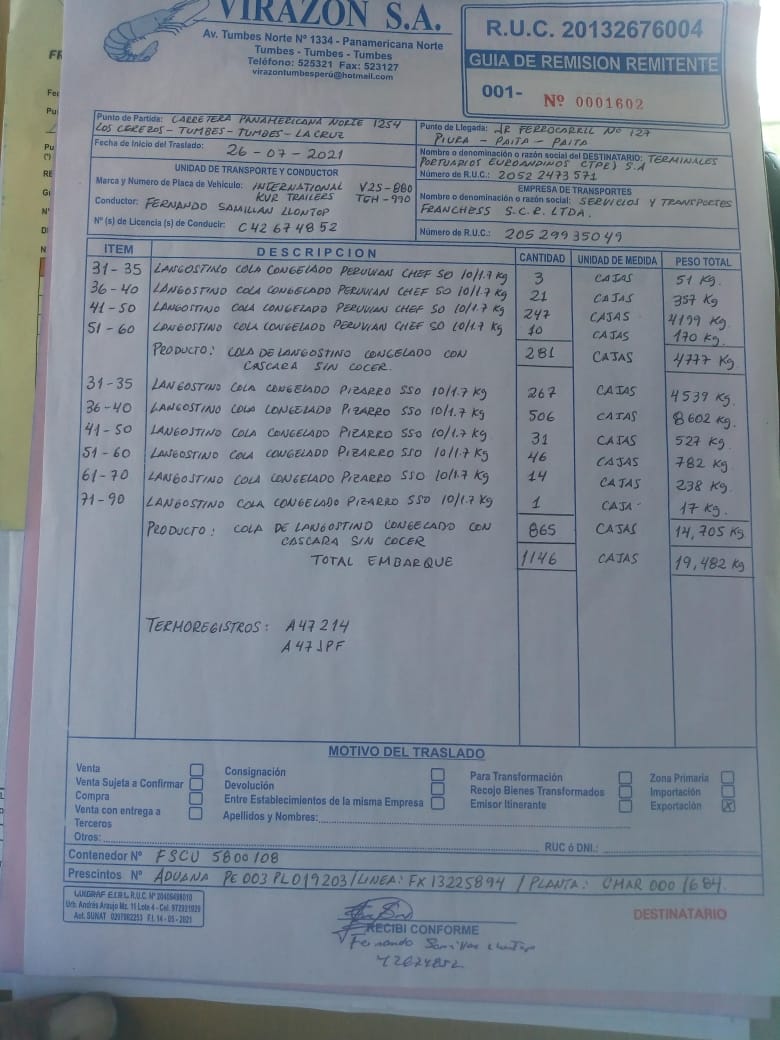 VIRAZON S.A.
Av. Tumbes Norte Nº 1334 - Panamericana Norte
Tumbes - Tumbes - Tumbes
Teléfono: 525321 Fax: 523127
virazontumbesperú@hotmail.com
R.U.C. 20132676004
GUIA DE REMISION REMITENTE
001- Nº 0001602
Punto de Partida: CARRETERA PANAMERICANA NORTE 1254
LOS CEREZOS - TUMBES - TUMBES - LA CRUZ
Fecha de Inicio del Traslado: 26-07-2021
Punto de Llegada: JR FERROCARRIL Nº 127
PIURA - PAITA - PAITA
Nombre o denominación o razón social del DESTINATARIO: TERMINALES
PORTUARIOS EUROANDINOS (TPE) S.A
Número de R.U.C.: 2052 2473571
UNIDAD DE TRANSPORTE Y CONDUCTOR
Marca y Numero de Placa de Vehiculo: INTERNATIONAL V2S-880
KUR TRAILERS TGH-990
Conductor: FERNANDO SAMILLAN LLONTOP
Nº (s) de Licencia (s) de Conducir: C42674852
EMPRESA DE TRANSPORTES
Nombre o denominación o razón social: SERVICIOS Y TRANSPORTES
FRANCHESS S.C.R. LTDA.
Número de R.U.C.: 20529935049
ITEM DESCRIPCION CANTIDAD UNIDAD DE MEDIDA PESO TOTAL
31-35 LANGOSTINO COLA CONGELADO PERUVIAN CHEF SO 10/1.7 Kg 3 CAJAS 51 Kg.
36-40 LANGOSTINO COLA CONGELADO PERUVIAN CHEF SO 10/1.7 Kg 21 CAJAS 357 Kg
41-50 LANGOSTINO COLA CONGELADO PERUVIAN CHEF SO 10/1.7 Kg 247 CAJAS 4199 Kg.
51-60 LANGOSTINO COLA CONGELADO PERUVIAN CHEF SO 10/1.7 Kg 10 CAJAS 170 Kg.
PRODUCTO: COLA DE LANGOSTINO CONGELADO CON 281 CAJAS 4777 Kg.
CASCARA SIN COCER.
31-35 LANGOSTINO COLA CONGELADO PIZARRO SSO 10/1.7 Kg 267 CAJAS 4539 Kg.
36-40 LANGOSTINO COLA CONGELADO PIZARRO SSO 10/1.7 Kg 506 CAJAS 8602 Kg.
41-50 LANGOSTINO COLA CONGELADO PIZARRO SSO 10/1.7 Kg 31 CAJAS 527 Kg.
51-60 LANGOSTINO COLA CONGELADO PIZARRO SSO 10/1.7 Kg 46 CAJAS 782 Kg.
61-70 LANGOSTINO COLA CONGELADO PIZARRO SSO 10/1.7 Kg 14 CAJAS 238 Kg.
71-90 LANGOSTINO COLA CONGELADO PIZARRO SSO 10/1.7 Kg 1 CAJA 17 Kg.
PRODUCTO: COLA DE LANGOSTINO CONGELADO CON 865 CAJAS 14,705 Kg
CASCARA SIN COCER
TOTAL EMBARQUE 1146 CAJAS 19,482 Kg
TERMOREGISTROS: A47214
A47JPF
MOTIVO DEL TRASLADO
Venta Consignación Para Transformación Zona Primaria
Venta Sujeta a Confirmar Devolución Recojo Bienes Transformados Importación
Compra Entre Establecimientos de la misma Empresa Emisor Itinerante Exportación X
Venta con entrega a Apellidos y Nombres:
Terceros
Otros: RUC ó DNI.:
Contenedor Nº FSCU 5800108
Prescintos Nº ADUANA PE 003 PL019203 / LINEA: FX13225894 / PLANTA: CMAR 000 1684.
LUIGRAF E.I.R.L R.U.C. Nº
Urb. Andrés Araujo Mz. 11 Lote 4 - Cel. 972931929
Aut. SUNAT F.I. 14 - 05 - 2021
RECIBI CONFORME
Fernando Samillan Llontop
42674852
DESTINATARIO